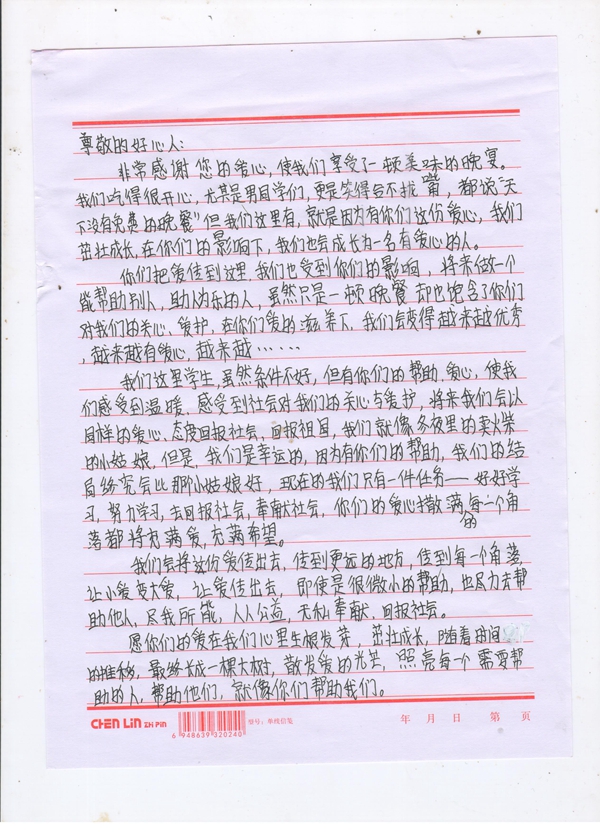 尊敬的好心人：
非常感谢您的爱心，使我们享受了一顿美味的晚宴。
我们吃得很开心，尤其是男同学们，更是笑得合不拢嘴，都说"天
下没有免费的晚餐"但我们这里有，就是因为有你们这份爱心，我们
茁壮成长，在你们的影响下，我们也会成长为一名有爱心的人。
你们把爱传到这里，我们也受到你们的影响，将来做一个
能帮助别人，助人为乐的人，虽然只是一顿晚餐 却也饱含了你们
对我们的关心、爱护，在你们爱的滋养下，我们会变得越来越优秀
，越来越有爱心，越来越……
我们这里学生，虽然条件不好，但有你们的帮助、爱心，使我
们感受到温暖，感受到社会对我们的关心与爱护，将来我们会以
同样的爱心、态度回报社会、回报祖国，我们就像冬夜里的卖火柴
的小姑娘，但是，我们是幸运的，因为有你们的帮助，我们的结
局终究会比那小姑娘好，现在的我们只有一件任务——好好学
习，努力学习，去回报社会，奉献社会，你们的爱心撒满每一个角
落都将有满爱，充满希望。
的
我们会将这份爱传出去，传到更远的地方，传到每一个角落，
让小爱变大爱，让爱传出去，即使是很微小的帮助，也尽力去帮
助他人，尽我所能，人人公益，无私奉献、回报社会。
愿你们的爱在我们心里生根发芽，茁壮成长，随着时间
的推移，最终长成一棵大树，散发爱的光芒，照亮每一个需要帮
助的人，帮助他们，就像你们帮助我们。
CHEN LIN ZHI PIN
6 948639 320240
编号：单线信笺
年 月 日 第 页